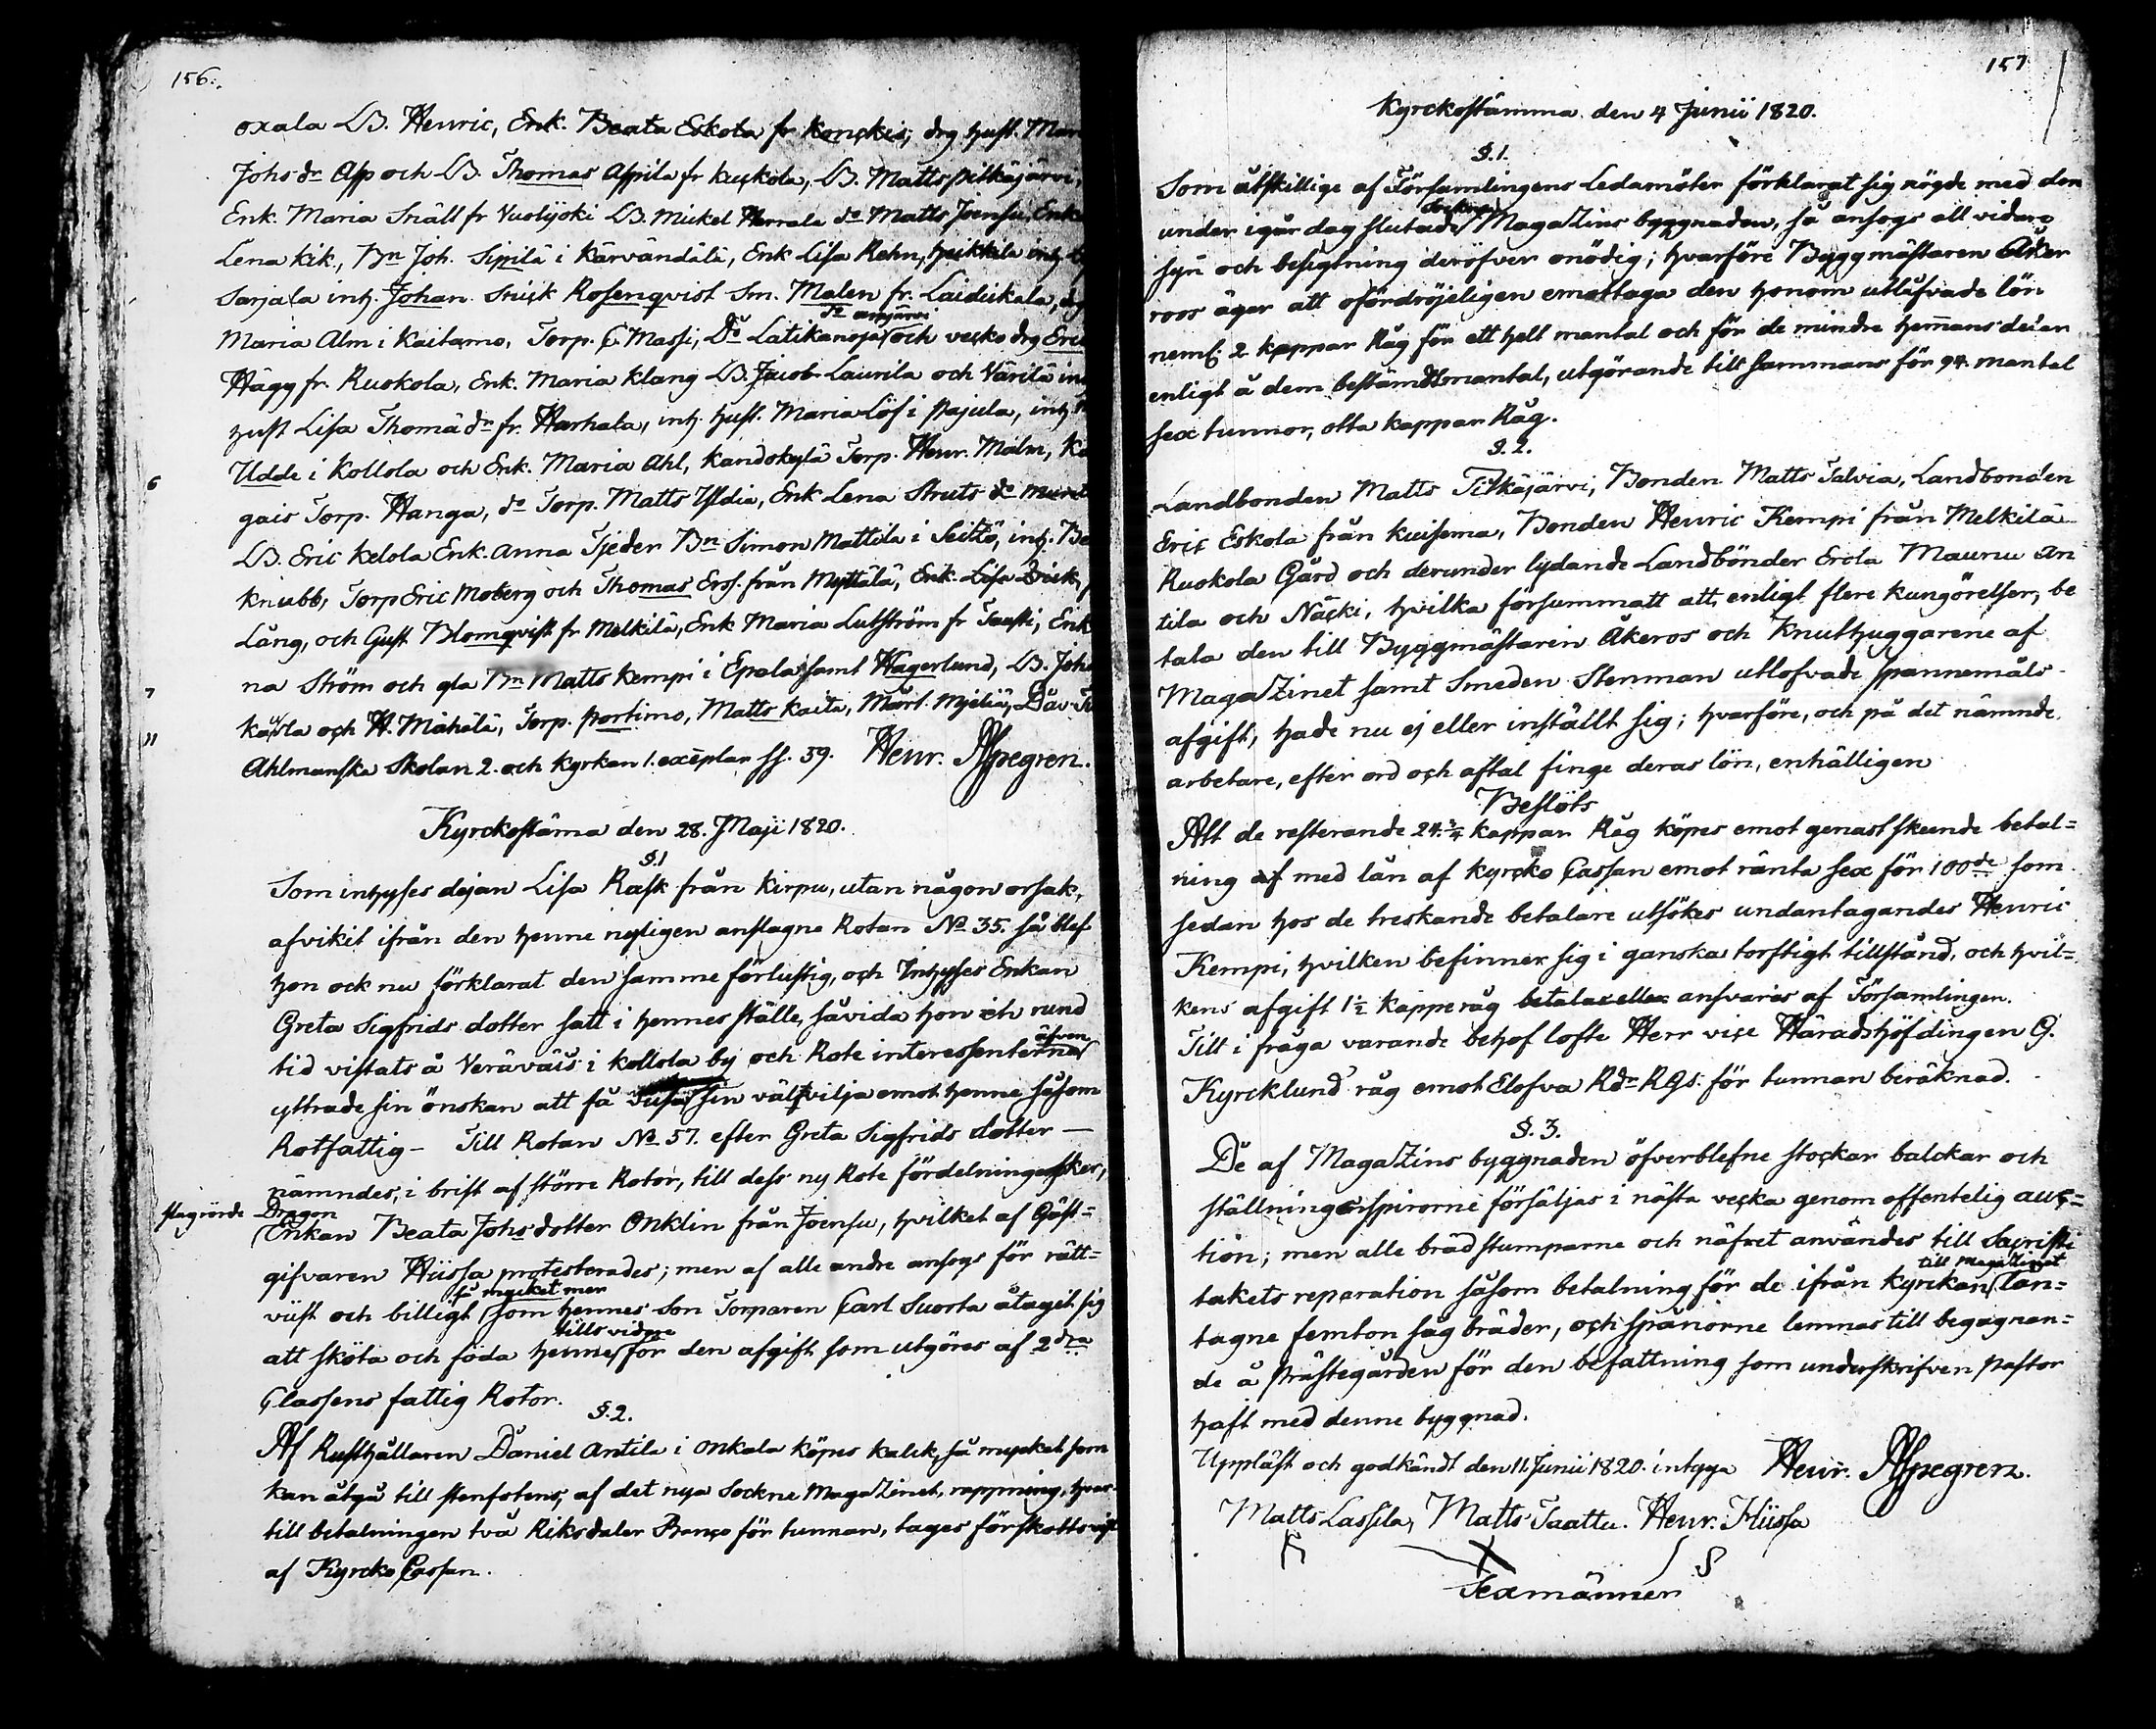 156.
oxala LB. Henric, Enk. Beata Eskola fr Konckis; drg hust. Mar
Johs dr Asp och LB. Thomas Assila fr Kuckola, LB. Matts Pitkäjärvi,
Enk. Maria Snäll fr Vuolijoki LB. Mickel Herrala do Matts Joensu, Enk
Lena Kik, Bn Joh. Sipilä i Kärvändälä, Enk Lisa Rehn, Heikkila inh.
Sarjala inh. Johan Snick Rosenqvist Sm. Malen fr. Laidickala, drg
do arajärvi
Maria Alm i Kaitamo, Torp. C Massi, Do Latikanoja och vecko drg Eric
Hägg fr Ruokola, Enk. Maria Klang LB. Jacob Laurila och Värilä in
hust Lisa Thomä dr fr. Harhala, inh. hust. Maria Löf i Pajula, inh
6
Udde i Kollola och Enk. Maria Ahl, Kandokylä Torp. Henr. Malm, Ka
gais Torp. Hanga, do Torp. Matts Yldia, Enk Lena Struts do
LB. Eric Kelola Enk. Anna Tjeder Bn Simon Mattila i Seitzö, inh. Be
Knubb, Torp Eric Moberg och Thomas Ers. från Myttälä, Enk. Lisa
Lång, och Gust Blomqvist fr Melkilä, Enk Maria Lutström fr Tausti, Enk
7
na Ström och gla Bn Matts Kempi i Epala, samt Hagerlund, LB. Joh
"
Kaurla och H. Mähälä, Torp. Portimo, Matts Kaita, Mårt. Mjeliä, Dav.
Ahlmanska Skolan 2. och Kyrkan 1. exēplar ss. 59. Henr. Aspegren.
Kyrckostäm̄a den 28. Maji 1820.
§.1
Som inhyses dejan Lisa Rask från Kirpu, utan någon orsak,
afvikit ifrån den henne nyligen anslagne Rotan No 35. så blef
hon ock nu förklarat den samme förlustig, och Inhyses Enkan
Greta Sigfrids dotter satt i hennes ställe, såvida hon en rund
tid vistats å Veräväis i Kollola by och Rote interessenterna
äfven
yttrade sin önskan att få sin välvilja emot henne såsom
Rotfattig – Till Rotan No 57. efter Greta Sigfrids dotter –
nämndes, i brist af större Rotor, till dess ny Rote fördelning sker,
Dragon
Enkan Beata Johs dotter Onklin från Joensu, hvilket af Gäst=
gifvaren Hiissa protesterades; men af alle andre ansogs för rätt=
så mycket mer
vist och billigt som hennes Son Torparen Carl Suorta åtagit sig
tills vidare
att sköta och föda henne för den afgift som utgöres af 2dra
Classens fattig Rotor.
§.2.
Af Rusthållaren Daniel Antila i Onkala köpes kalck, så mycket som
kan åtgå till stenfotens, af det nya Sockne MagaZinet, rappning, hvar-
till betalningen två Riksdaler Banco för tunnan, tages förskottsvis
af Kyrcko Cassan.
157
Kyrckostämma den 4 Junii 1820.
§.1.
Som åtskillige af Församlingens Ledamöter förklarat sig nögde med den
Sockne
under igår dag slutade MagaZins byggnaden, så ansogs all vidare
syn och besigtning deröfver onödig; hvarföre Byggmästaren Åker
roos äger att ofördröjeligen emottaga den honom utlåfvade lön
neml: 2 kappar Råg för ett helt mantal och för de mindre hem̄ans delar
enligt å dem bestämdt mantal, utgörande till sammans för 94. mantal
sex tunnor, otta kappar Råg.
§.2.
Landbonden Matts Pitkäjärvi, Bonden Matts Talvia, Landbonden
Eric Eskola från Kuisema, Bonden Henric Kempi från Melkilä
Ruokola Gård och derunder lydande Landbönder Erola Maunu An
tila och Näcki, hvilka försummatt att, enligt flere kungörelser, be
tala den till Byggmästaren Åkeros och Knuthuggarene af
MagaZinet samt Smeden Stenman utlofvade spannemåls-
afgift, hade nu ej eller inställt sig; hvarföre, och på det nämnde
arbetare, efter ord och aftal finge deras lön, enhälligen
Beslöts
Att de resterande 24.¾ kappar Råg köpes emot genast skeende betal=
ning af med lån af Kyrcko Cassan emot ränta sex för 100de som
sedan hos de treskande betalare utsökes undantagandes Henric
Kempi, hvilken befinner sig i ganska torftigt tillstånd, och hvil=
kens afgift 1½ kappe råg betalas eller ansvaras af Församlingen.
Till i fråga varande behof lofte Herr vice Häradshöfdingen G.
Kyrcklund råg emot Elofva Rdr RGS. för tunnan beräknad.
§.3.
De af MagaZins byggnaden öfverblefne stockar balckar och
ställnings spirorne försäljas i nästa vecka genom offentelig auc=
tion; men alle brädstumparne och näfret användes till Sacristi
till MagaZinet
takets reparation såsom betalning för de ifrån Kyrckan lån=
tagne femton såg bräder, och spånorne lemnas till begagnan=
de å Prästegården för den befattning som underskrifven Pastor
haft med denne byggnad.
Uppläst och godkändt den 11. Junii 1820. intyga Henr. Aspegren.
Matts Lassila, Matts Taattu. Henr. Hiissa
Sexmänner